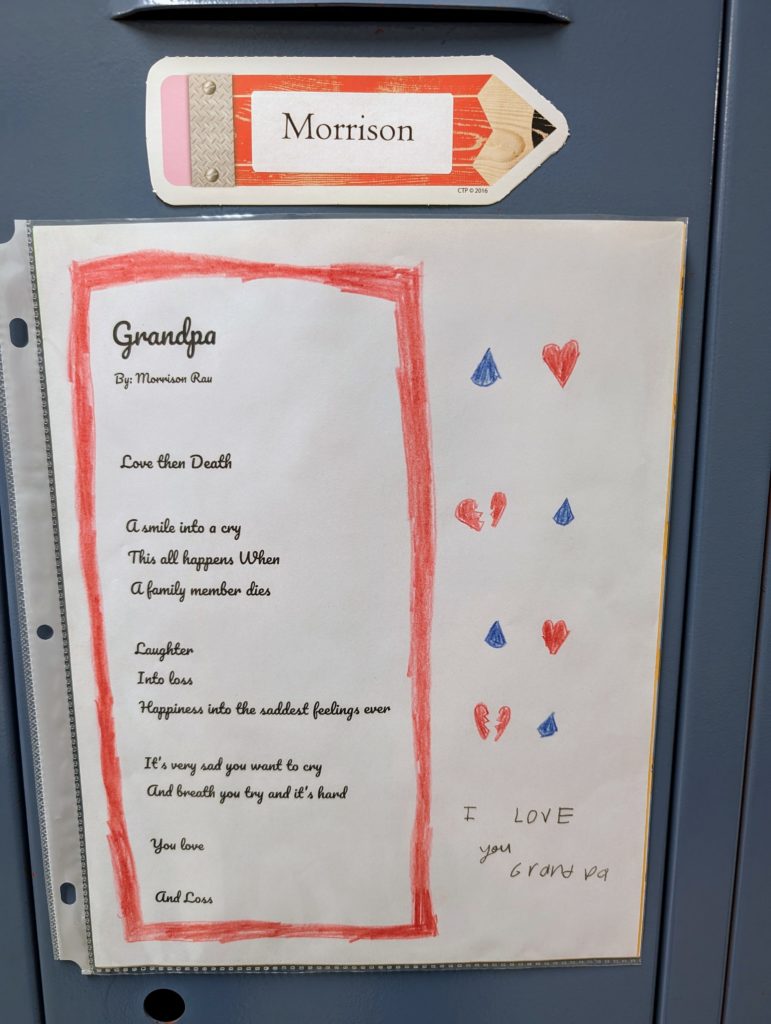 Morrison
CTP © 2016
Grandpa
By: Morrison Rau
Love then Death
A smile into a cry
This all happens When
A family member dies
Laughter
Into loss
Happiness into the saddest feelings ever
It's very sad you want to cry
And breath you try and it's hard
You love
And Loss
I LOVE
you
Grandpa